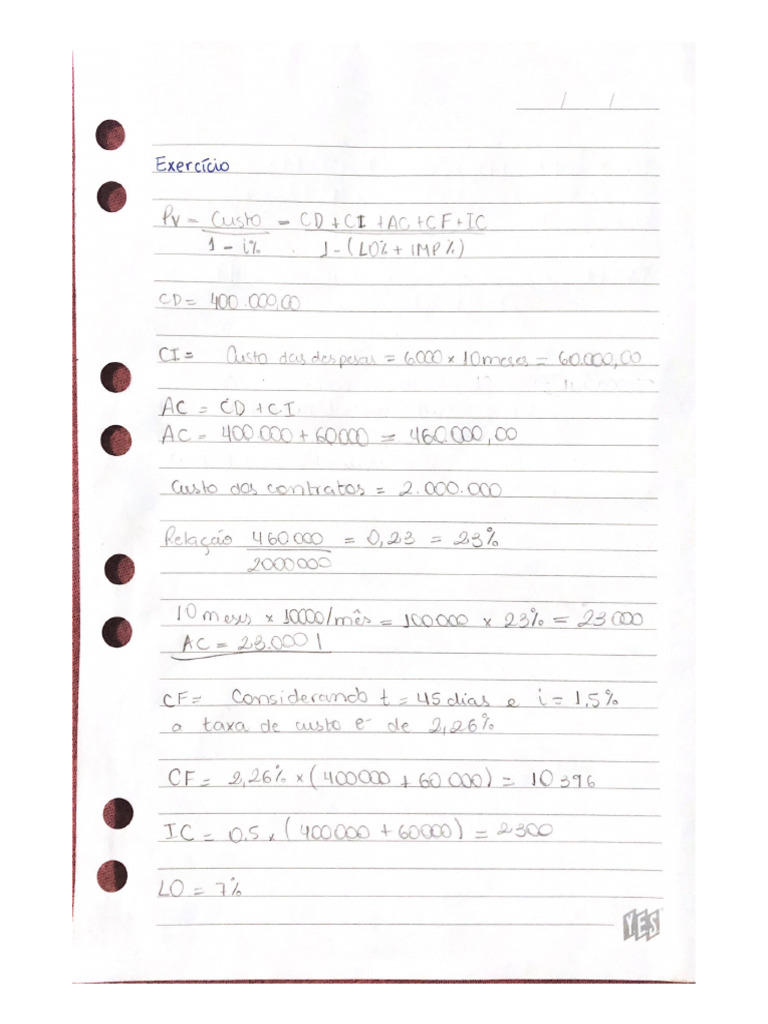 / /
Exercício
PV = Custo = CD + CI + AC + CF + IC
1 - i% . 1 - (LO% + IMP%)
CD = 400.000,00
CI = Custo das despesas = 6000 x 10 meses = 60.000,00
AC = CD + CI
AC = 400.000 + 60000 = 460.000,00
Custo dos contratos = 2.000.000
Relação 460000 = 0,23 = 23%
2000000
10 meses x 10000/mês = 100000 x 23% = 23000
AC = 23.000
CF = Considerando t = 45 dias e i = 1,5%
a taxa de custo é de 2,26%
CF = 2,26% x (400000 + 60 000) = 10396
IC = 0.5 x (400000 + 60000) = 2300
LO = 7%
YES